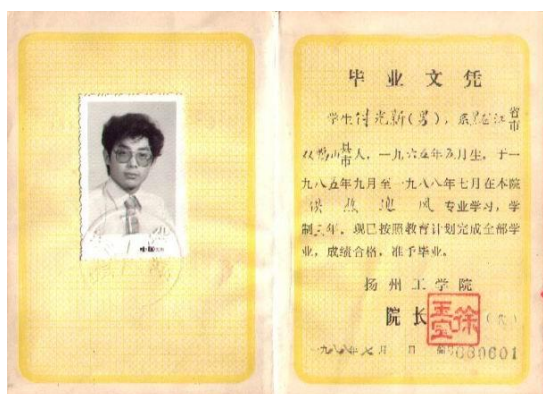 毕业文凭
学生付光新(男),系黑龙江省市
双鸭山县市人,一九六五年五月生,于一
九八五年九月至一九八八年七月在本院
供热通风专业学习,学
制三年,现已按照教育计划完成全部学
业,成绩合格,准予毕业。
扬州工学院
院长
徐
一九八八年七月 日